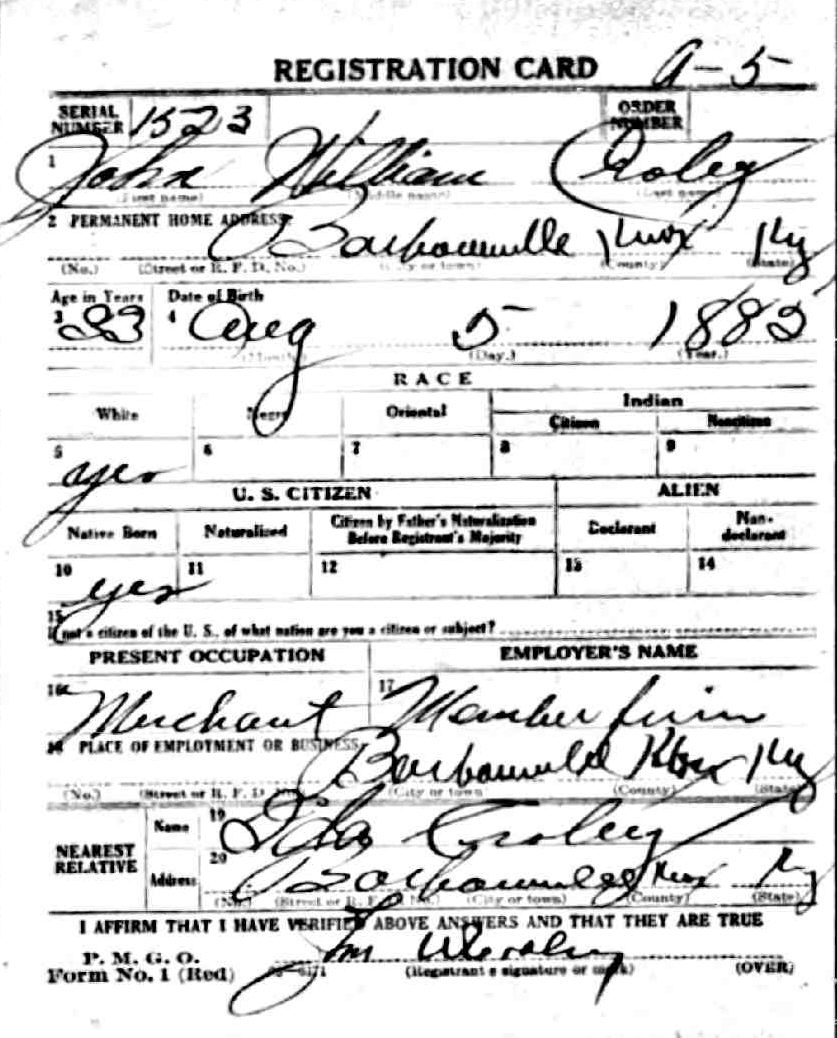 REGISTRATION CARD A-5
SERIAL NUMBER 1523 ORDER NUMBER
1 John William Croley
(First name) (Middle name) (Last name)
2 PERMANENT HOME ADDRESS:
Barbourville Knox Ky
(No.) (Street or R. F. D. No.) (City or town) (County) (State)
Age in Years Date of Birth
3 33 4 Aug 5 1885
(Month.) (Day.) (Year.)
RACE
White Negro Oriental Indian
Citizen Noncitizen
5 yes 6 7 8 9
U. S. CITIZEN ALIEN
Native Born Naturalized Citizen by Father's Naturalization Before Registrant's Majority Declarant Non-declarant
10 yes 11 12 13 14
15
If not a citizen of the U. S., of what nation are you a citizen or subject?
PRESENT OCCUPATION EMPLOYER'S NAME
16 Merchant 17 Member firm
18 PLACE OF EMPLOYMENT OR BUSINESS:
Barbourville Knox Ky
(No.) (Street or R. F. D. No.) (City or town) (County) (State)
NEAREST RELATIVE Name 19 Ida Croley
Address 20 Barbourville Knox Ky
(No.) (Street or R. F. D. No.) (City or town) (County) (State)
I AFFIRM THAT I HAVE VERIFIED ABOVE ANSWERS AND THAT THEY ARE TRUE
P. M. G. O.
Form No. 1 (Red) (Registrant's signature or mark) (OVER)